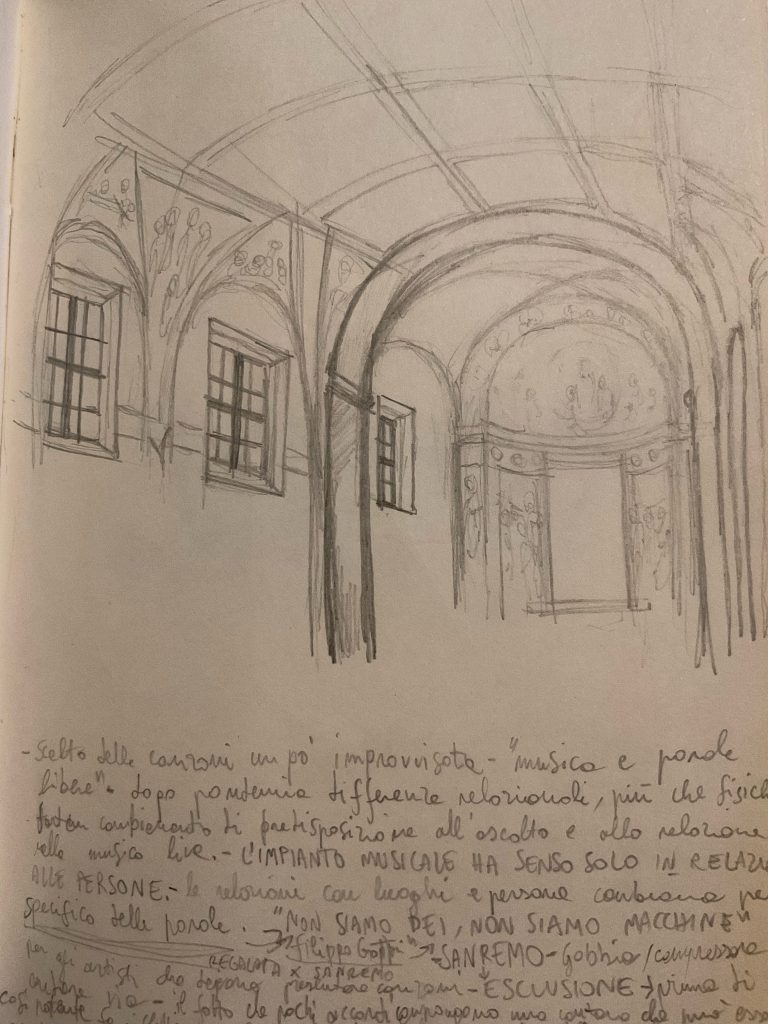 - Scelta delle canzoni un po' improvvisata - "musica e parole
libere" - dopo pandemia differenza relazionali, più che fisich
cambiamento di predisposizione all'ascolto e alla relazione
nella musica live. - L'IMPIANTO MUSICALE HA SENSO SOLO IN RELAZI
ALLE PERSONE. - le relazioni con luoghi e persone cambiano pe
specifico delle parole. "NON SIAMO DEI, NON SIAMO MACCHINE"
"Filippo Gatti" - SANREMO - Gabbia/compressore
REGALATA X SANREMO
per gli artisti che devono presentare canzoni - ESCLUSIONE → prima di
via - il fatto che pochi accordi compongano una canzone che può
così potente